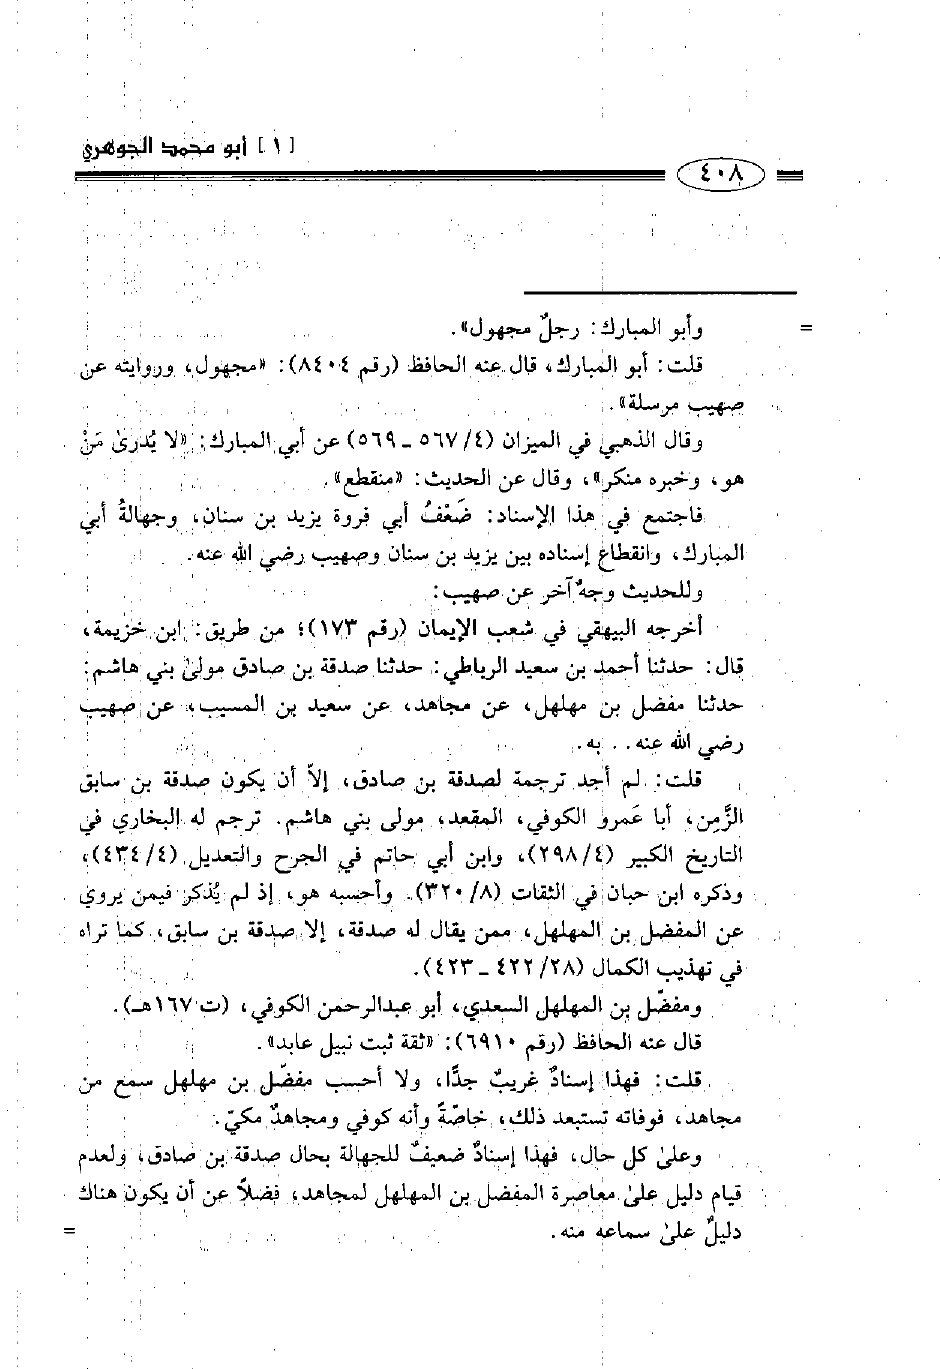 [ ١ ] أبو محمد الجوهري
٤٠٨
= وأبو المبارك: رجلٌ مجهول».
قلت: أبو المبارك، قال عنه الحافظ (رقم ٨٤٠٤): «مجهول، وروايته عن
صهيب مرسلة».
وقال الذهبي في الميزان (٤/ ٥٦٧ ـ ٥٦٩) عن أبي المبارك: «لا يُدرىٰ مَنْ
هو، وخبره منكر»، وقال عن الحديث: «منقطع».
فاجتمع في هذا الإسناد: ضَعْفُ أبي فروة يزيد بن سنان، وجهالةُ أبي
المبارك، وانقطاع إسناده بين يزيد بن سنان وصهيب رضي الله عنه.
وللحديث وجهٌ آخر عن صهيب:
أخرجه البيهقي في شعب الإيمان (رقم ١٧٣)؛ من طريق: ابن خزيمة،
قال: حدثنا أحمد بن سعيد الرباطي: حدثنا صدقة بن صادق مولىٰ بني هاشم:
حدثنا مفضل بن مهلهل، عن مجاهد، عن سعيد بن المسيب، عن صهيب
رضي الله عنه. . به.
قلت: لم أجد ترجمة لصدقة بن صادق، إلاّ أن يكون صدقة بن سابق
الزَّمِن، أبا عَمرو الكوفي، المقعد، مولى بني هاشم. ترجم له البخاري في
التاريخ الكبير (٤/ ٢٩٨)، وابن أبي حاتم في الجرح والتعديل (٤/ ٤٣٤)،
وذكره ابن حبان في الثقات (٨/ ٣٢٠). وأحسبه هو، إذ لم يُذكر فيمن يروي
عن المفضل بن المهلهل، ممن يقال له صدقة، إلا صدقة بن سابق، كما تراه
في تهذيب الكمال (٢٨/ ٤٢٢ ـ ٤٢٣).
ومفضّل بن المهلهل السعدي، أبو عبدالرحمن الكوفي، (ت ١٦٧هـ).
قال عنه الحافظ (رقم ٦٩١٠): «ثقة ثبت نبيل عابد».
قلت: فهذا إسنادٌ غريبٌ جدًّا، ولا أحسب مفضّل بن مهلهل سمع من
مجاهد، فوفاته تستبعد ذلك، خاصّةً وأنه كوفي ومجاهدٌ مكيّ.
وعلىٰ كل حال، فهذا إسنادٌ ضعيفٌ للجهالة بحال صدقة بن صادق، ولعدم
قيام دليل علىٰ معاصرة المفضل بن المهلهل لمجاهد، فضلاً عن أن يكون هناك
دليلٌ علىٰ سماعه منه. =